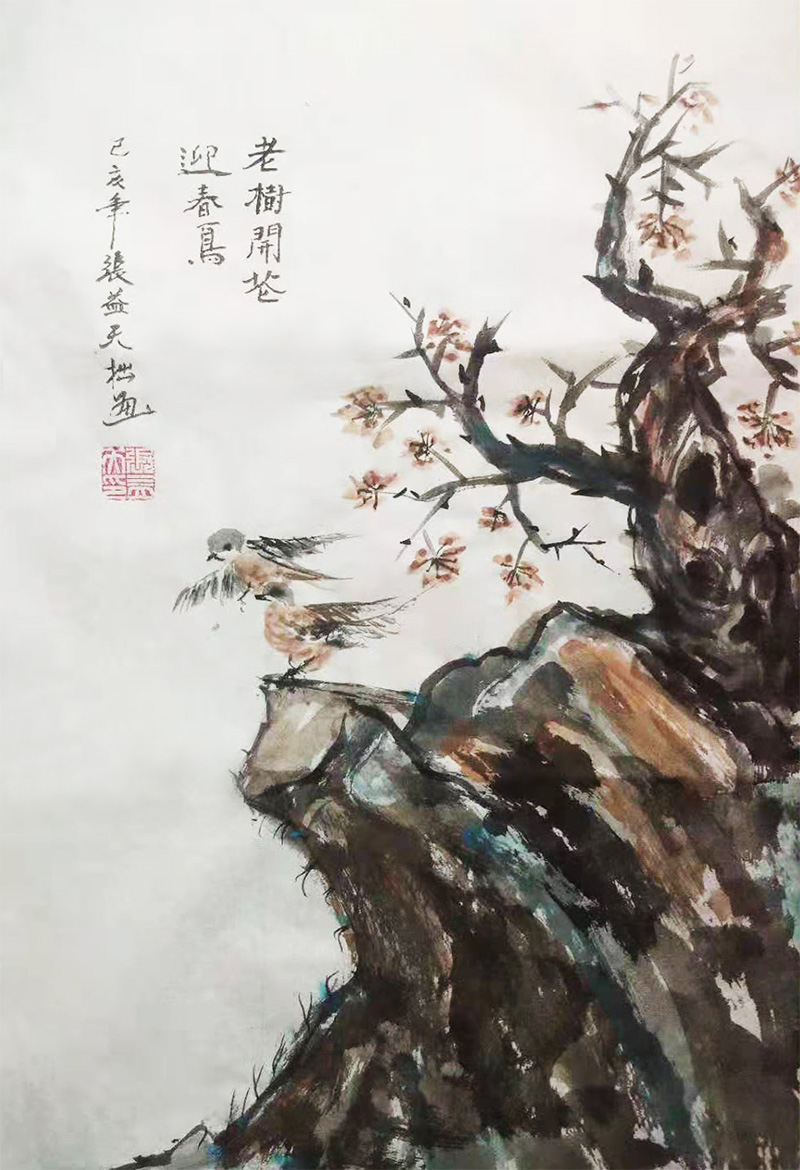 老樹開花
迎春鳥
己亥年張益天拙画